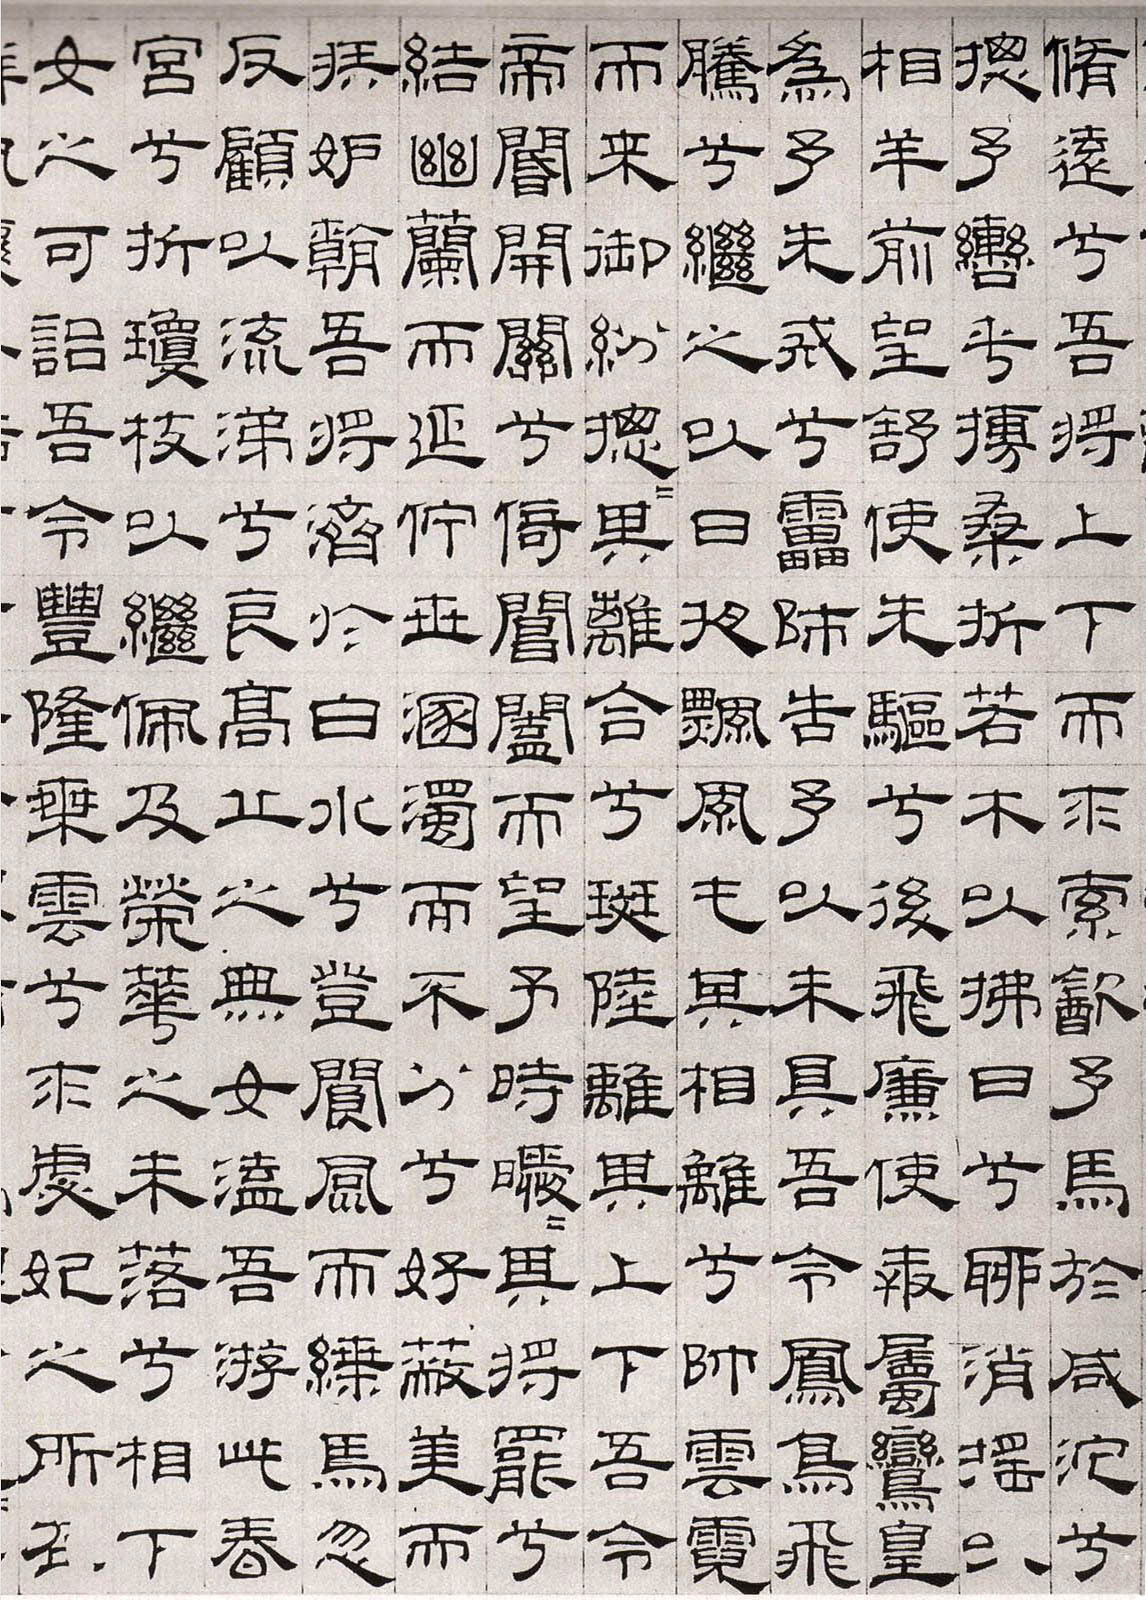 脩遠兮吾將上下而求索飲予馬於咸沱兮
揔予轡乎摶桑折若木以拂日兮聊消搖以
相羊前望舒使先驅兮後飛廉使奔屬鸞皇
為予先戒兮靁師告予以未具吾令鳳鳥飛
騰兮繼之以日夜飄風屯其相離兮帥雲霓
而来御紛揔=其離合兮斑陸離其上下吾令
帝閽開關兮倚閶闔而望予時曖=其將罷兮
結幽蘭而延佇世溷濁而不分兮好蔽美而
疾妒朝吾將濟於白水兮登閬風而緤馬忽
反顧以流涕兮哀高丘之無女溘吾游此春
宮兮折瓊枝以繼佩及榮華之未落兮相下
女之可詒吾令豐隆乘雲兮求虙妃之所在